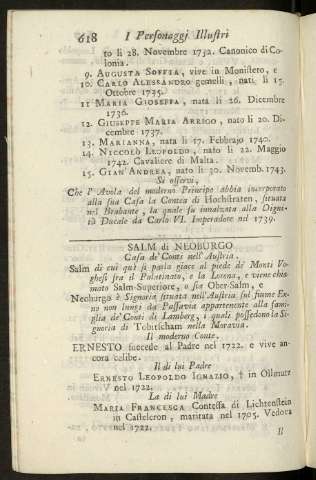 618 I Personaggi Illustri
to li 28. Novembre 1732. Canonico di Co-
lonia.
9. AUGUSTA SOFFIA, vive in Monistero, e
10. CARLO ALESSANDRO gemelli, nati li 15.
Ottobre 1735.
11 MARIA GIOSEFFA, nata li 26. Dicembre
1736.
12. GIUSEPPE MARIA ARRIGO, nato li 20. Di-
cembre 1737.
13. MARIANNA, nata li 17. Febbrajo 1740.
14. NICCOLÒ LEOPOLDO, nato li 22. Maggio
1742. Cavaliere di Malta.
15. GIAN' ANDREA, nato li 30. Novemb. 1743.
Si osservi,
Che l' Avola del moderno Principe abbia incorporato
alla sua Casa la Contea di Hochstraten, situata
nel Brabante, la quale fu innalzata alla Digni-
tà Ducale da Carlo VI. Imperadore nel 1739.
SALM di NEOBURGO
Casa de' Conti nell' Austria.
Salm di cui quì si parla giace al piede de' Monti Vo-
ghesi fra il Palatinato, e la Lorena, e viene chia-
mato Salm-Superiore, o sia Ober-Salm, e
Neoburgo è Signoria situata nell' Austria sul fiume Ex-
no non lungi da Passavia appartenente alla fami-
glia de' Conti di Lamberg, i quali possedono la Si-
gnoria di Tobitscham nella Moravia.
Il moderno Conte,
ERNESTO succede al Padre nel 1722. e vive an-
cora celibe.
Il di lui Padre
ERNESTO LEOPOLDO IGNAZIO, † in Ollmutz
nel 1722.
La di lui Madre
MARIA FRANCESCA Contessa di Lichtenstein
in Castelcron, maritata nel 1705. Vedova
nel 1722.
Il